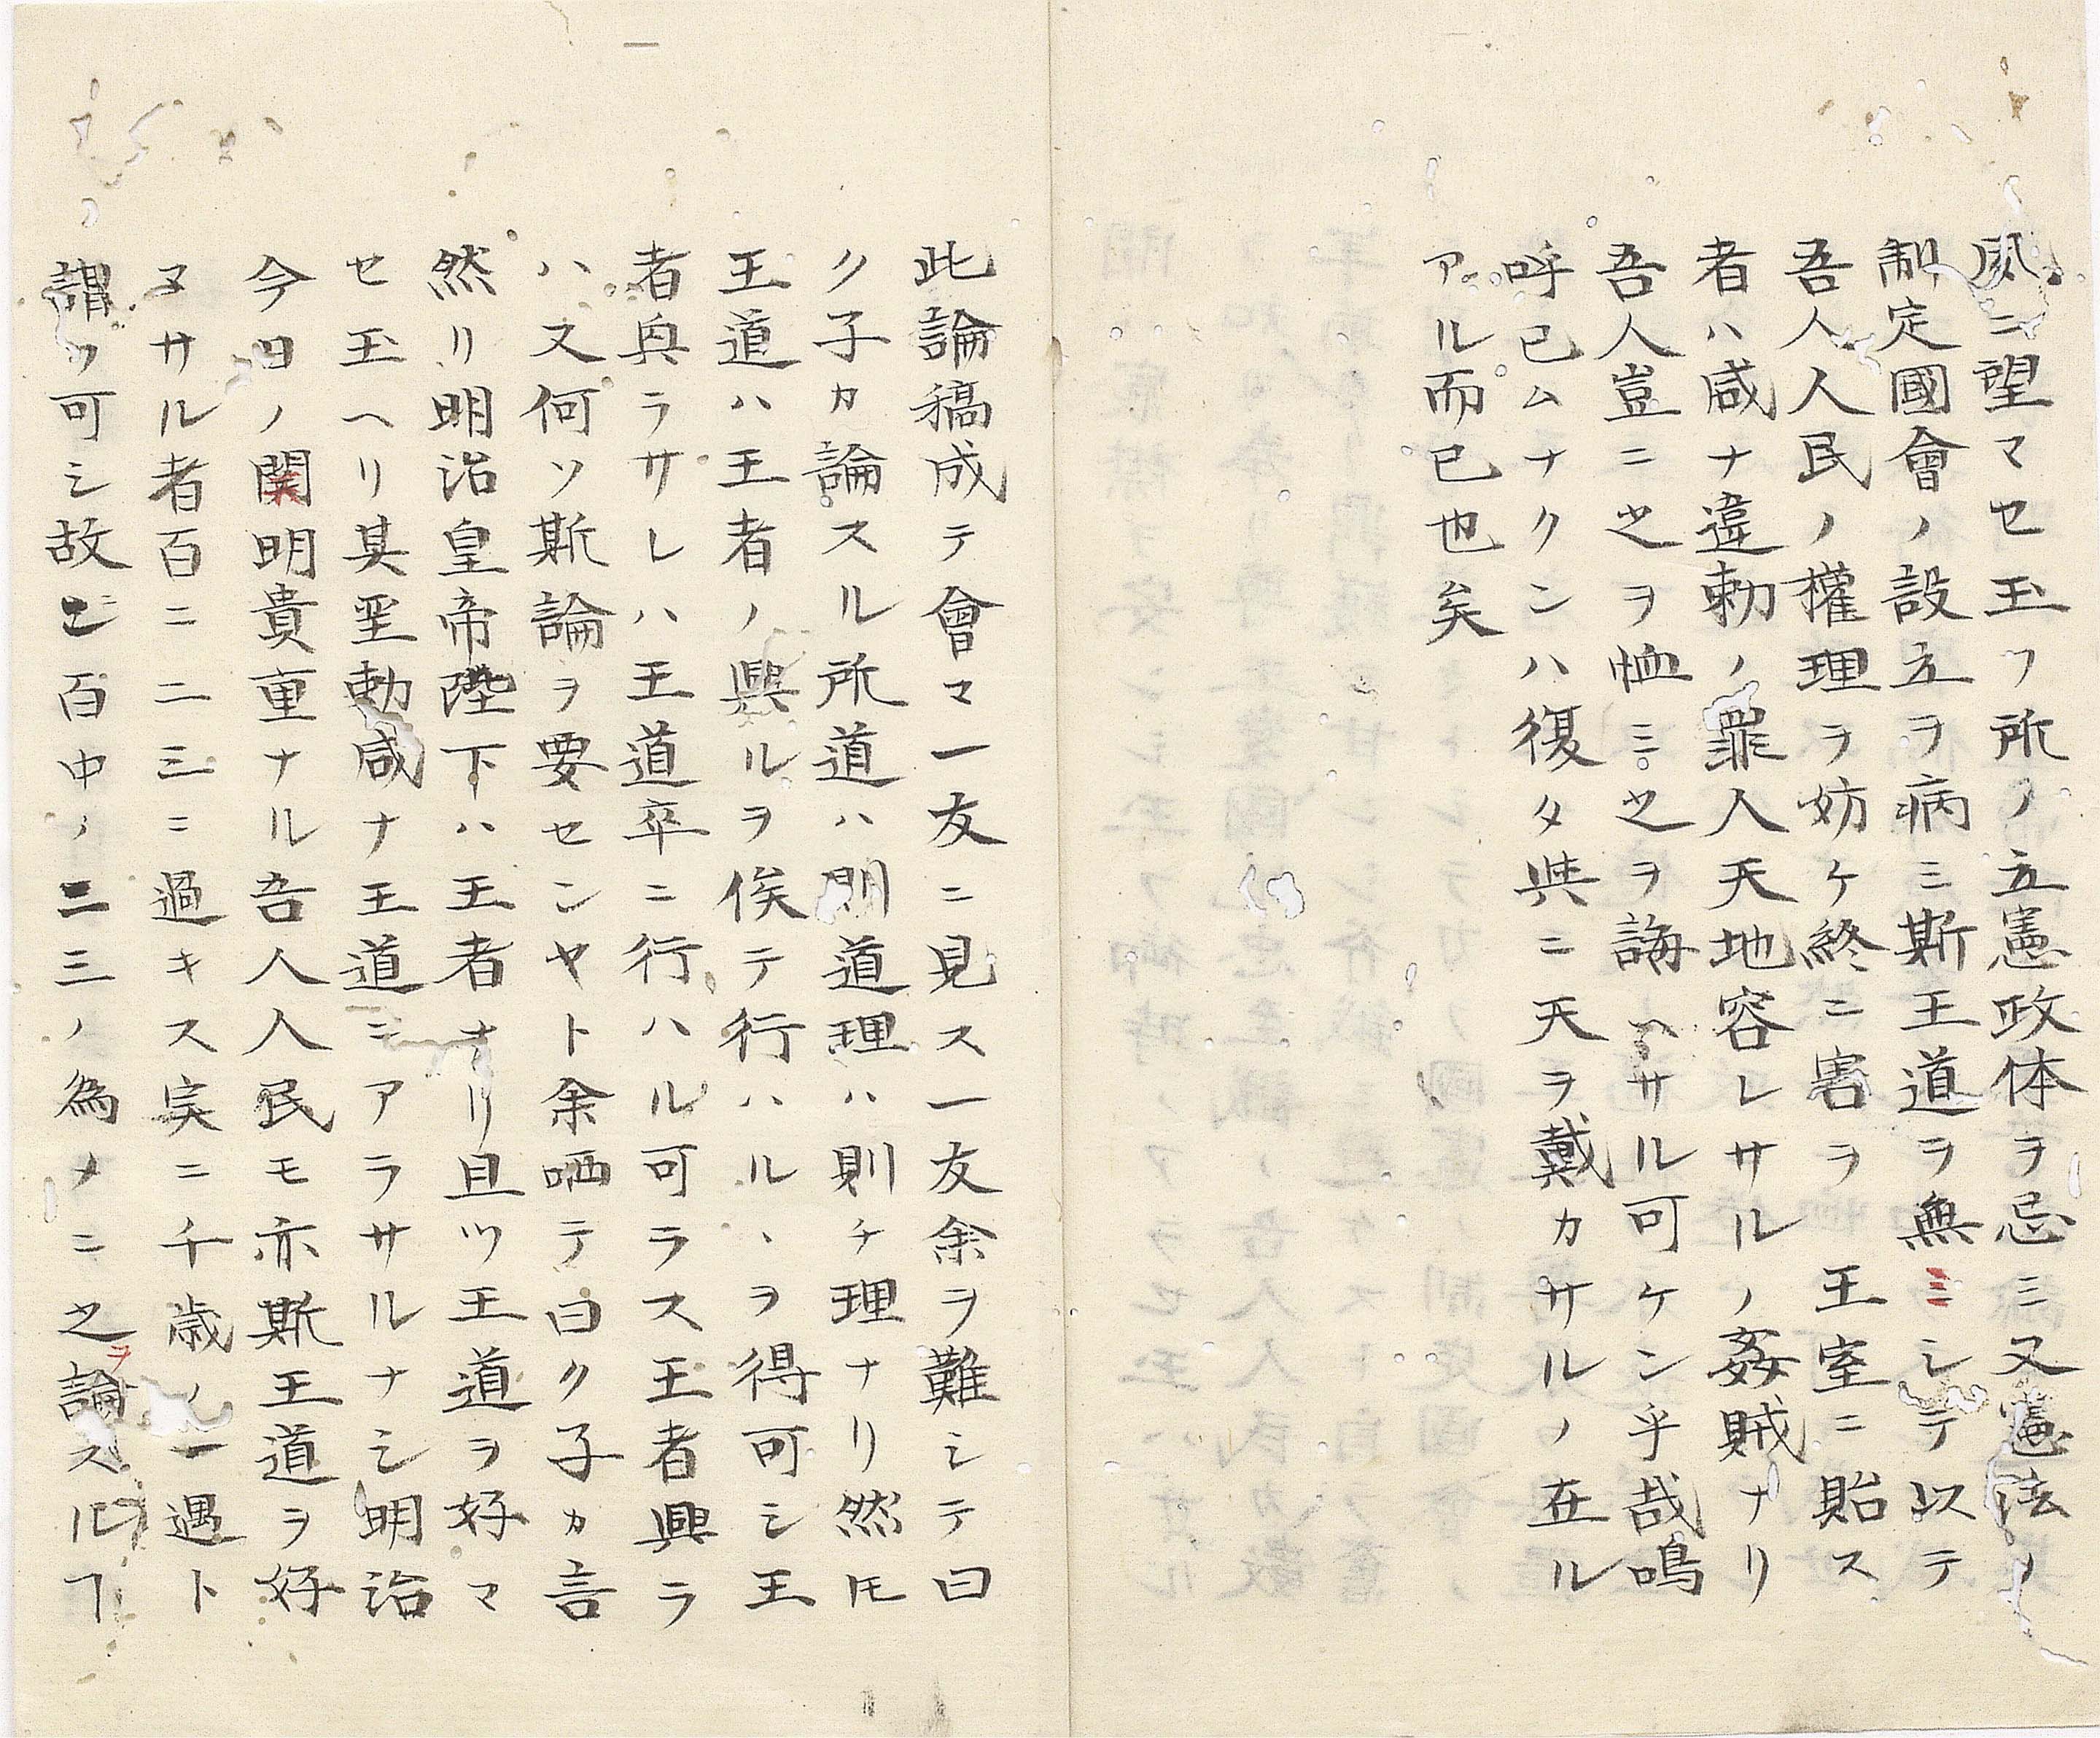 夙ニ望マセ玉フ所ノ立憲政体ヲ忌ミ又憲法ノ
制定國會ノ設立ヲ病ミ斯王道ヲ無ミシテ以テ
吾人人民ノ權理ヲ妨ケ終ニ害ヲ　王室ニ貽ス
者ハ咸ナ違勅ノ罪人天地容レサルノ姦賊ナリ
吾人豈ニ之ヲ恤ミ之ヲ誨ヘサル可ケン乎哉嗚
呼已ムナクンハ復タ與ニ天ヲ戴カサルノ在ル
アル而已也矣
此論稿成テ會マ一友ニ見ス一友余ヲ難シテ曰
ク子カ論スル所道ハ則道理ハ則チ理ナリ然ㇳモ
王道ハ王者ノ興ルヲ俟テ行ハルヽヲ得可シ王
者興ラサレハ王道卒ニ行ハル可ラス王者興ラ
ハ又何ソ斯論ヲ要センヤト余哂テ曰ク子カ言
然リ明治皇帝陛下ハ王者ナリ且ツ王道ヲ好マ
セ玉ヘリ其聖勅咸ナ王道ニアラサルナシ明治
今日ノ開明貴重ナル吾人人民モ亦斯王道ヲ好
マサル者百ニ二三ニ過キス実ニ千歳ノ一遇ト
謂フ可シ故ニ百中ノ二三ノ為メニ之ヲ論スルヿ